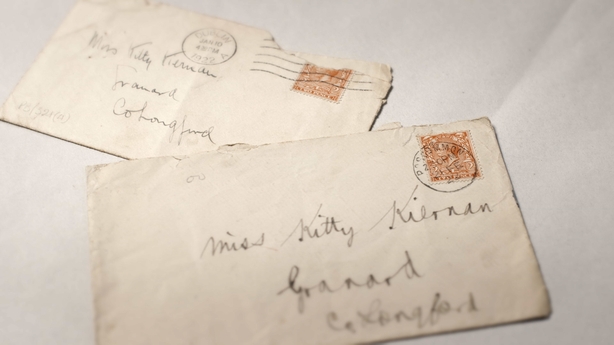 Miss Kitty Kiernan
Granard
Co Longford
Miss Kitty Kiernan
Granard
Co Longford